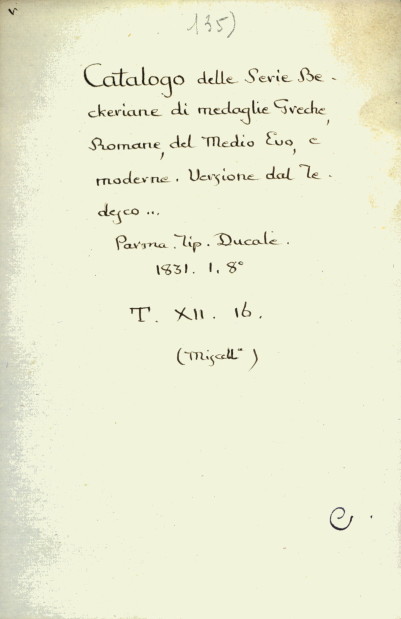 135)
Catalogo delle Serie Be-
ckeriane di medaglie Greche,
Romane, del Medio Evo, e
moderne. Versione dal Te-
desco...
Parma. Tip. Ducale.
1831. 1. 8°
T. XII. 16.
(Miscell.ª)
C.